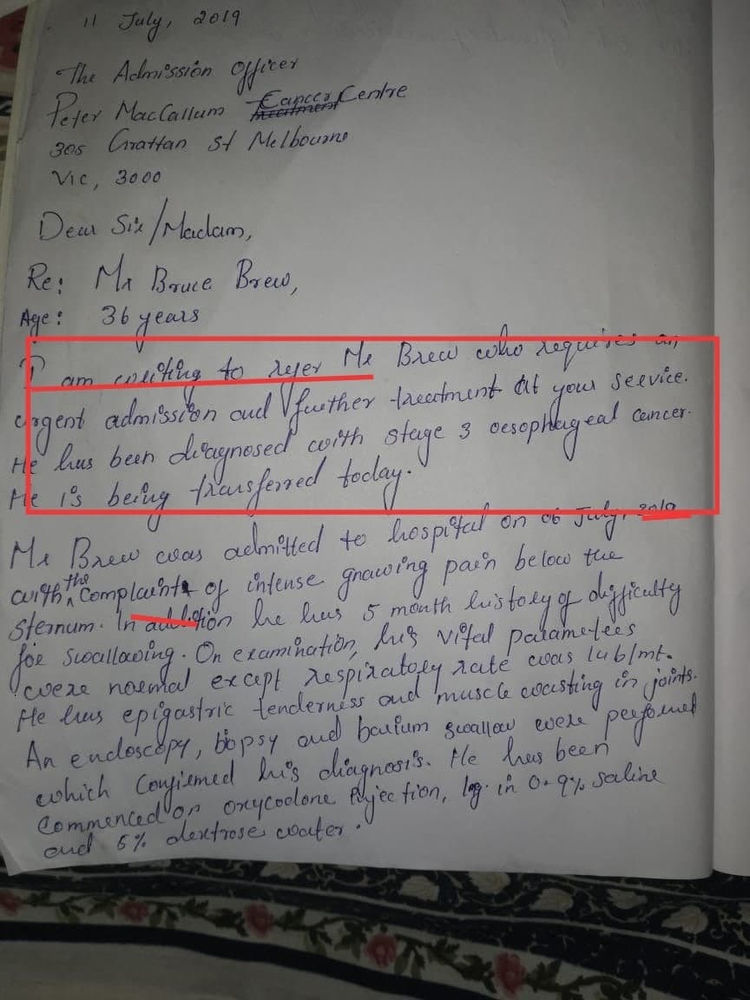 11 July, 2019
The Admission Officer
Peter MacCallum Cancer Centre
305 Grattan st Melbourne
Vic, 3000
Dear Sir/Madam,
Re: Mr Bruce Brew,
Age: 36 years
I am writing to refer Mr Brew who requires an
urgent admission and further treatment at your service.
He has been diagnosed with stage 3 oesophageal cancer.
He is being transferred today.
Mr Brew was admitted to hospital on 06 July, 2019
with the complaint of intense gnawing pain below the
sternum. In addition he has 5 month history of difficulty
for swallowing. On examination, his vital parameters
were normal except respiratory rate was 14b/mt.
He has epigastric tenderness and muscle wasting in joints.
An endoscopy, biopsy and barium swallow were performed
which confirmed his diagnosis. He has been
commenced on oxycodone injection, in 0.9% saline
and 5% dextrose water.